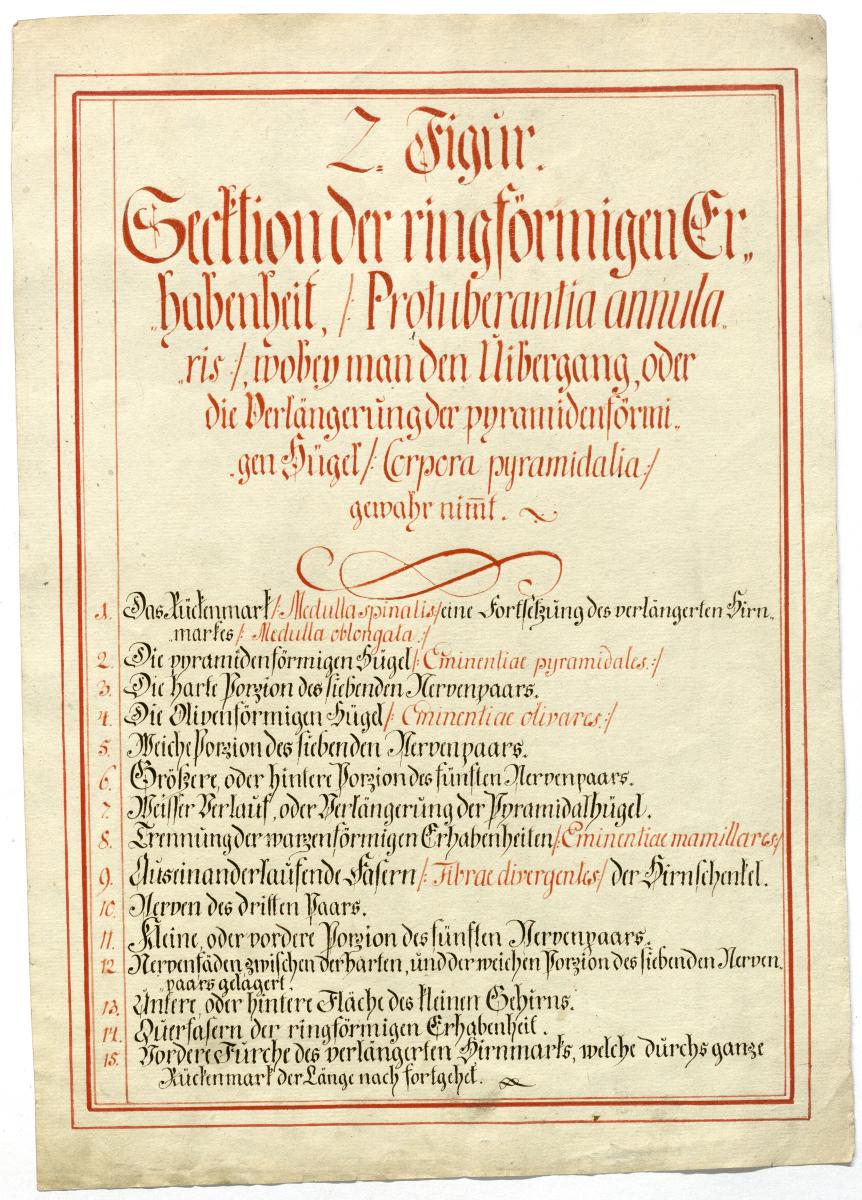 2. Figur.
Secktion der ringförmigen Er„
„habenheit, /: Protuberantia annula„
„ris :/, wobey man den Uibergang, oder
die Verlängerung der pyramidenförmi„
„gen Hügel /: Corpora pyramidalia :/
gewahr nim̅t.
1. Das Rückenmark /: Medulla spinalis :/ eine Fortsetzung des verlängerten Hirn„
„markes /: Medulla oblongata :/
2. Die pyramidenförmigen Hügel /: Eminentiae pyramidales. :/
3. Die harte Porzion des siebenden Nervenpaars.
4. Die Olivenförmigen Hügel /: Eminentiae olivares. :/
5. Weiche Porzion des siebenden Nervenpaars.
6. Größere, oder hintere Porzion des fünften Nervenpaars.
7. Weisser Verlauf, oder Verlängerung der Pyramidalhügel.
8. Trennung der warzenförmigen Erhabenheiten /: Eminentiae mamillares :/
9. Auseinanderlaufende Fasern /: Fibrae divergentes :/ der Hirnschenkel.
10. Nerven des dritten Paars.
11. Kleine, oder vordere Porzion des fünften Nervenpaars.
12. Nervenfäden zwischen der harten, und der weichen Porzion des siebenden Nerven„
„paars gelagert.
13. Untere, oder hintere Fläche des kleinen Gehirns.
14. Querfasern der ringförmigen Erhabenheit.
15. Vordere Furche des verlängerten Hirnmarks, welche durchs ganze
Rückenmark der Länge nach fortgehet.